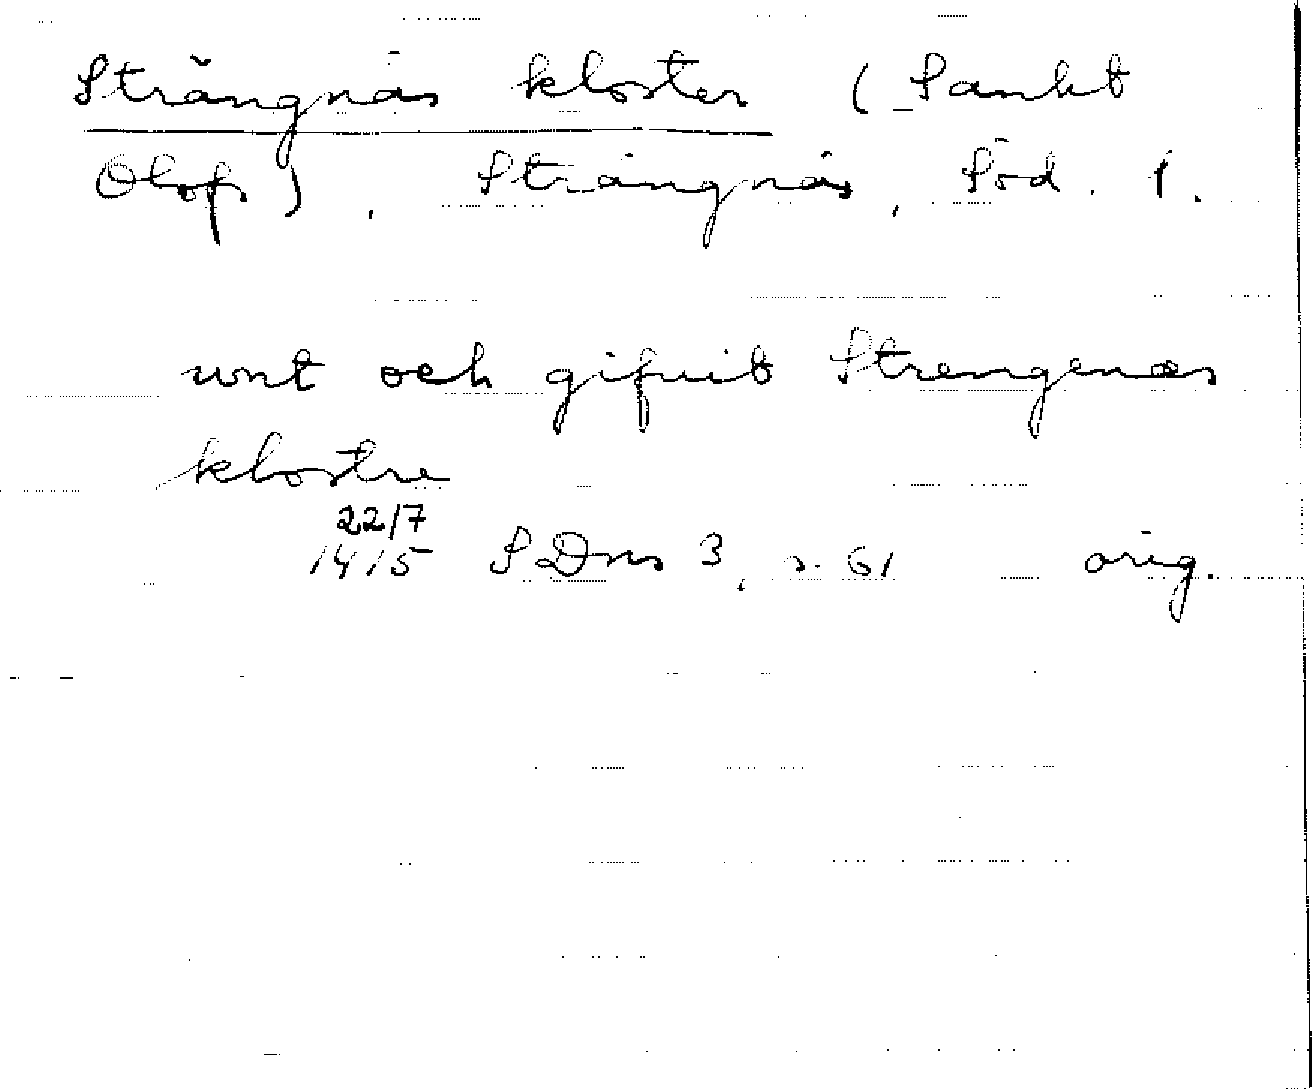 Strängnäs kloster (Sankt
Olof), Strängnäs, Söd. l.
unt och gifuit Strengenæs
klostre
22/7
1415 SDns 3, s. 61 orig.